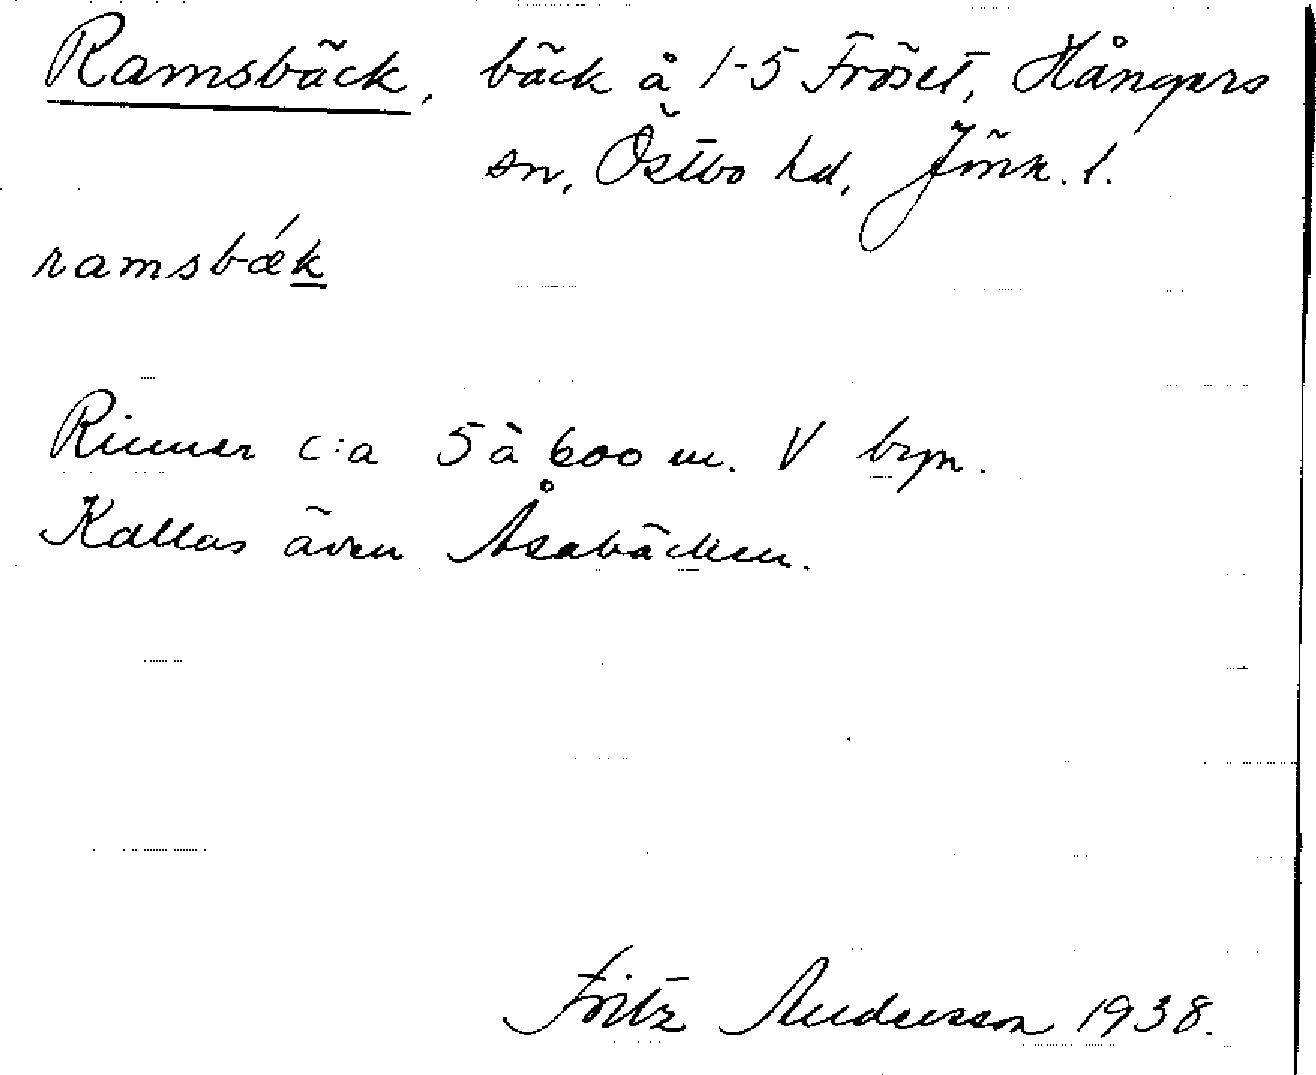 Ramsbäck, bäck å 1-5 Fröset, Hångers
sn, Östbo hd, Jönk. l.
ramsbǽk
Rinner c:a 5 à 600 m. V byn.
Kallas även Åsabäcken.
Fritz Andersson 1938.